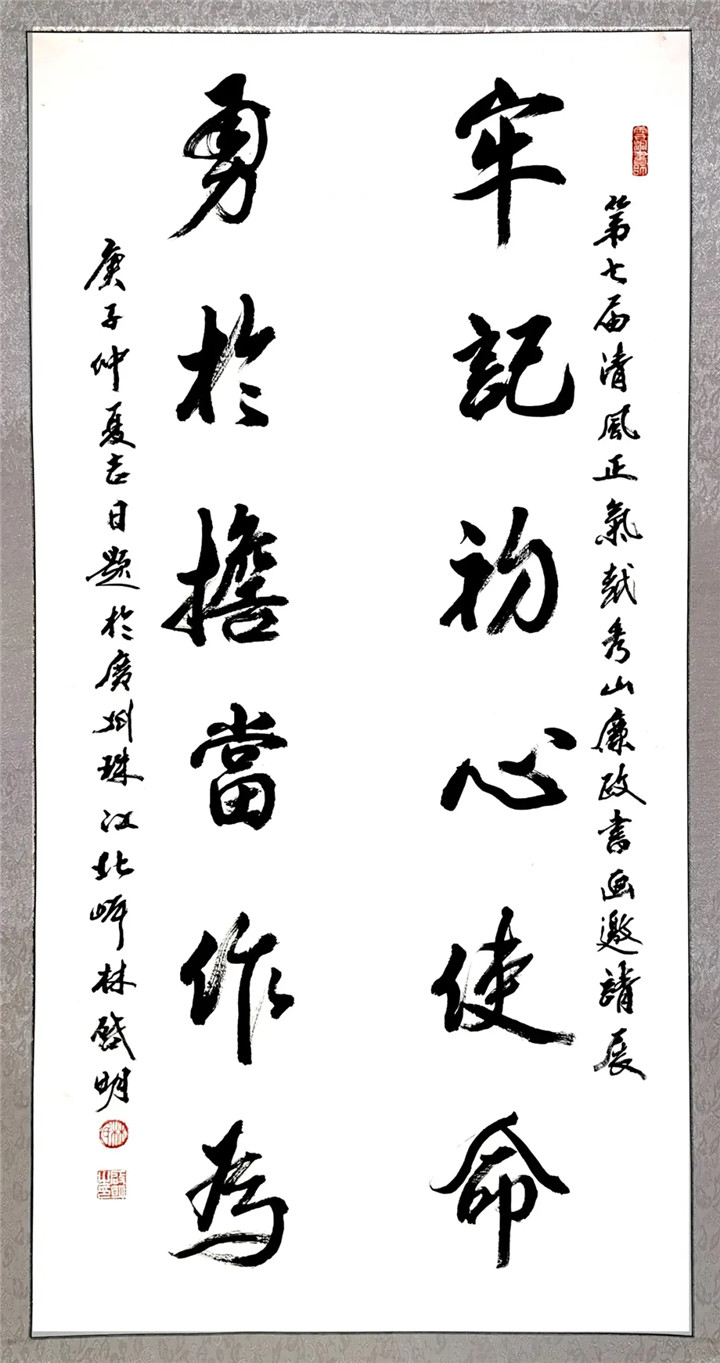 第七届清風正氣越秀山廉政書画邀請展
牢記初心使命
勇於擔當作為
庚子仲夏吉日題於廣州珠江北岸林啓明